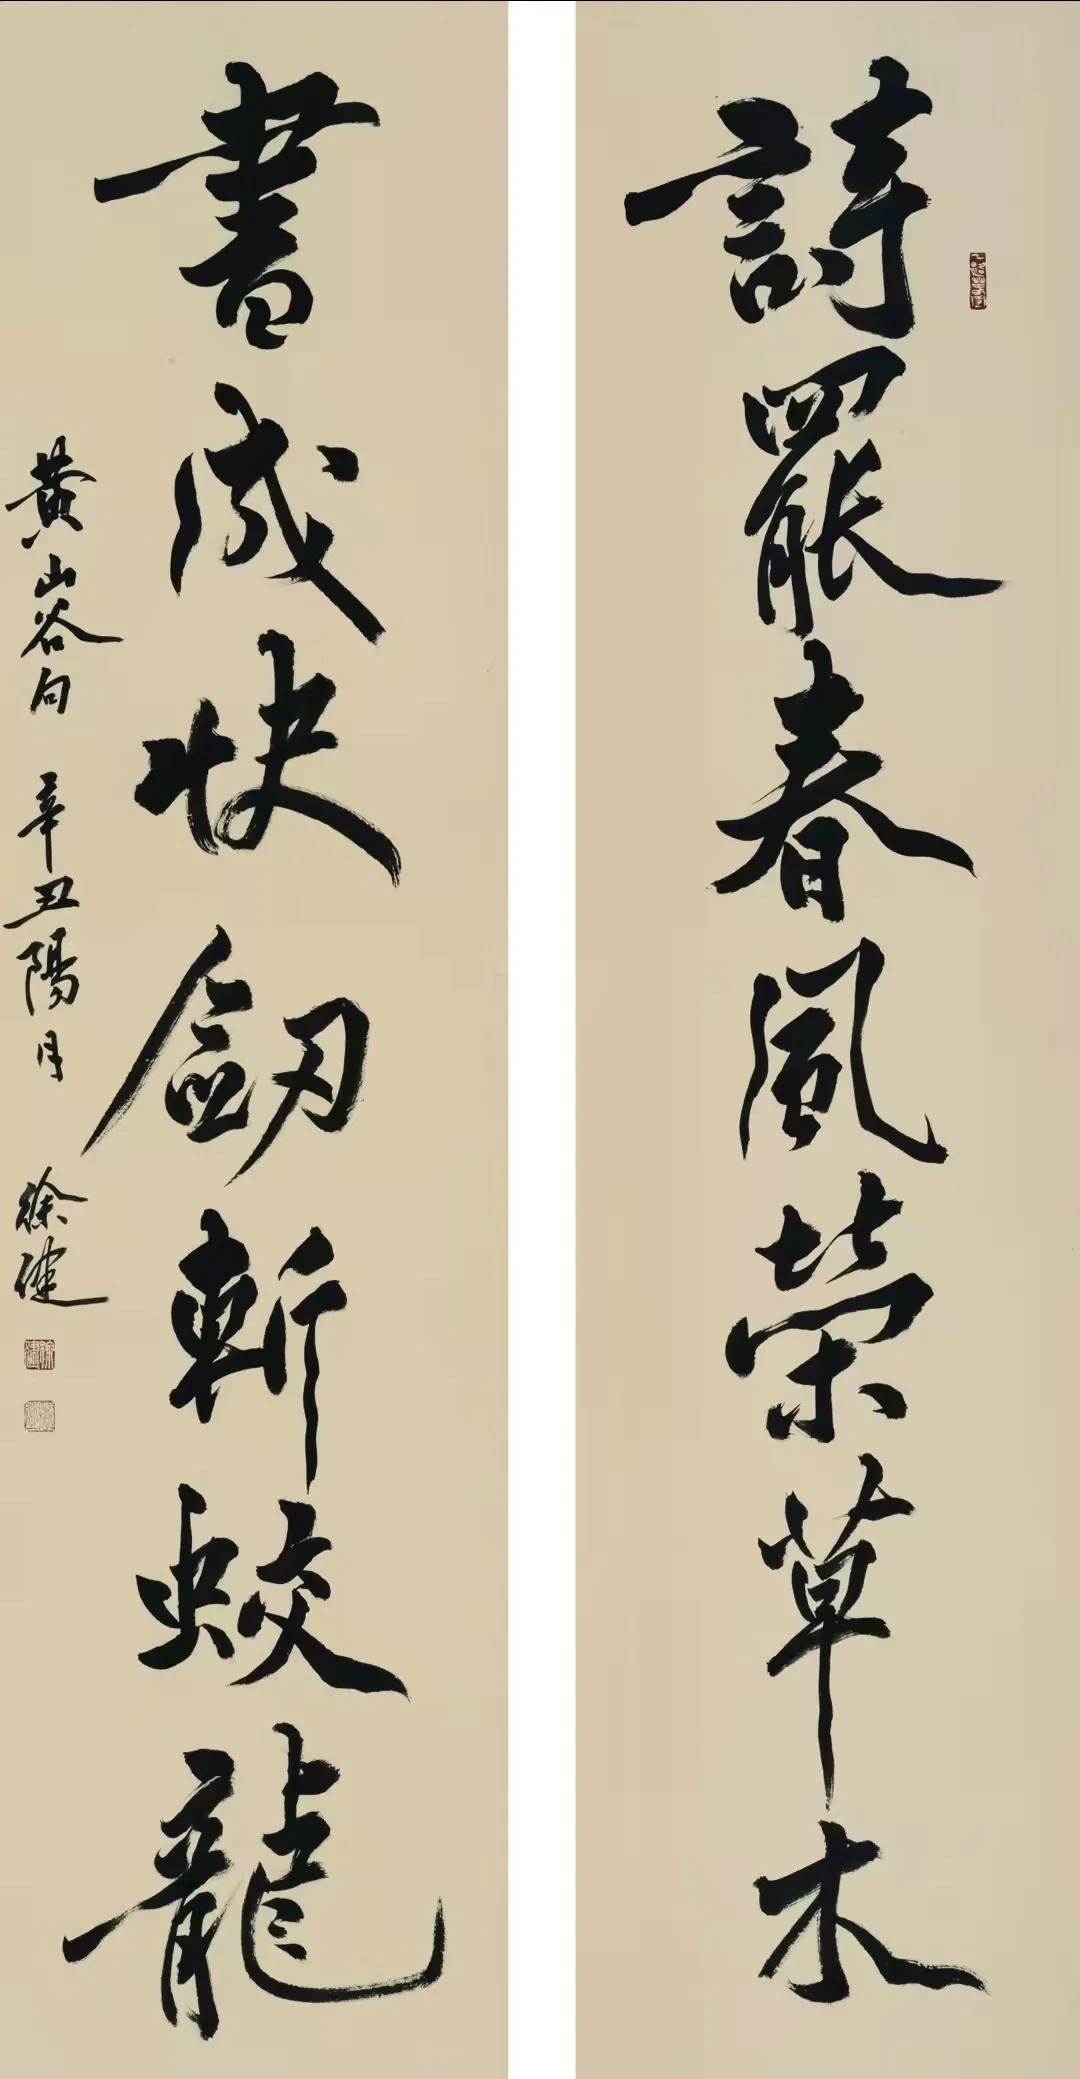 詩罷春風榮草木
書成快劔斬蛟龍
黄山谷句 辛丑陽月 徐健